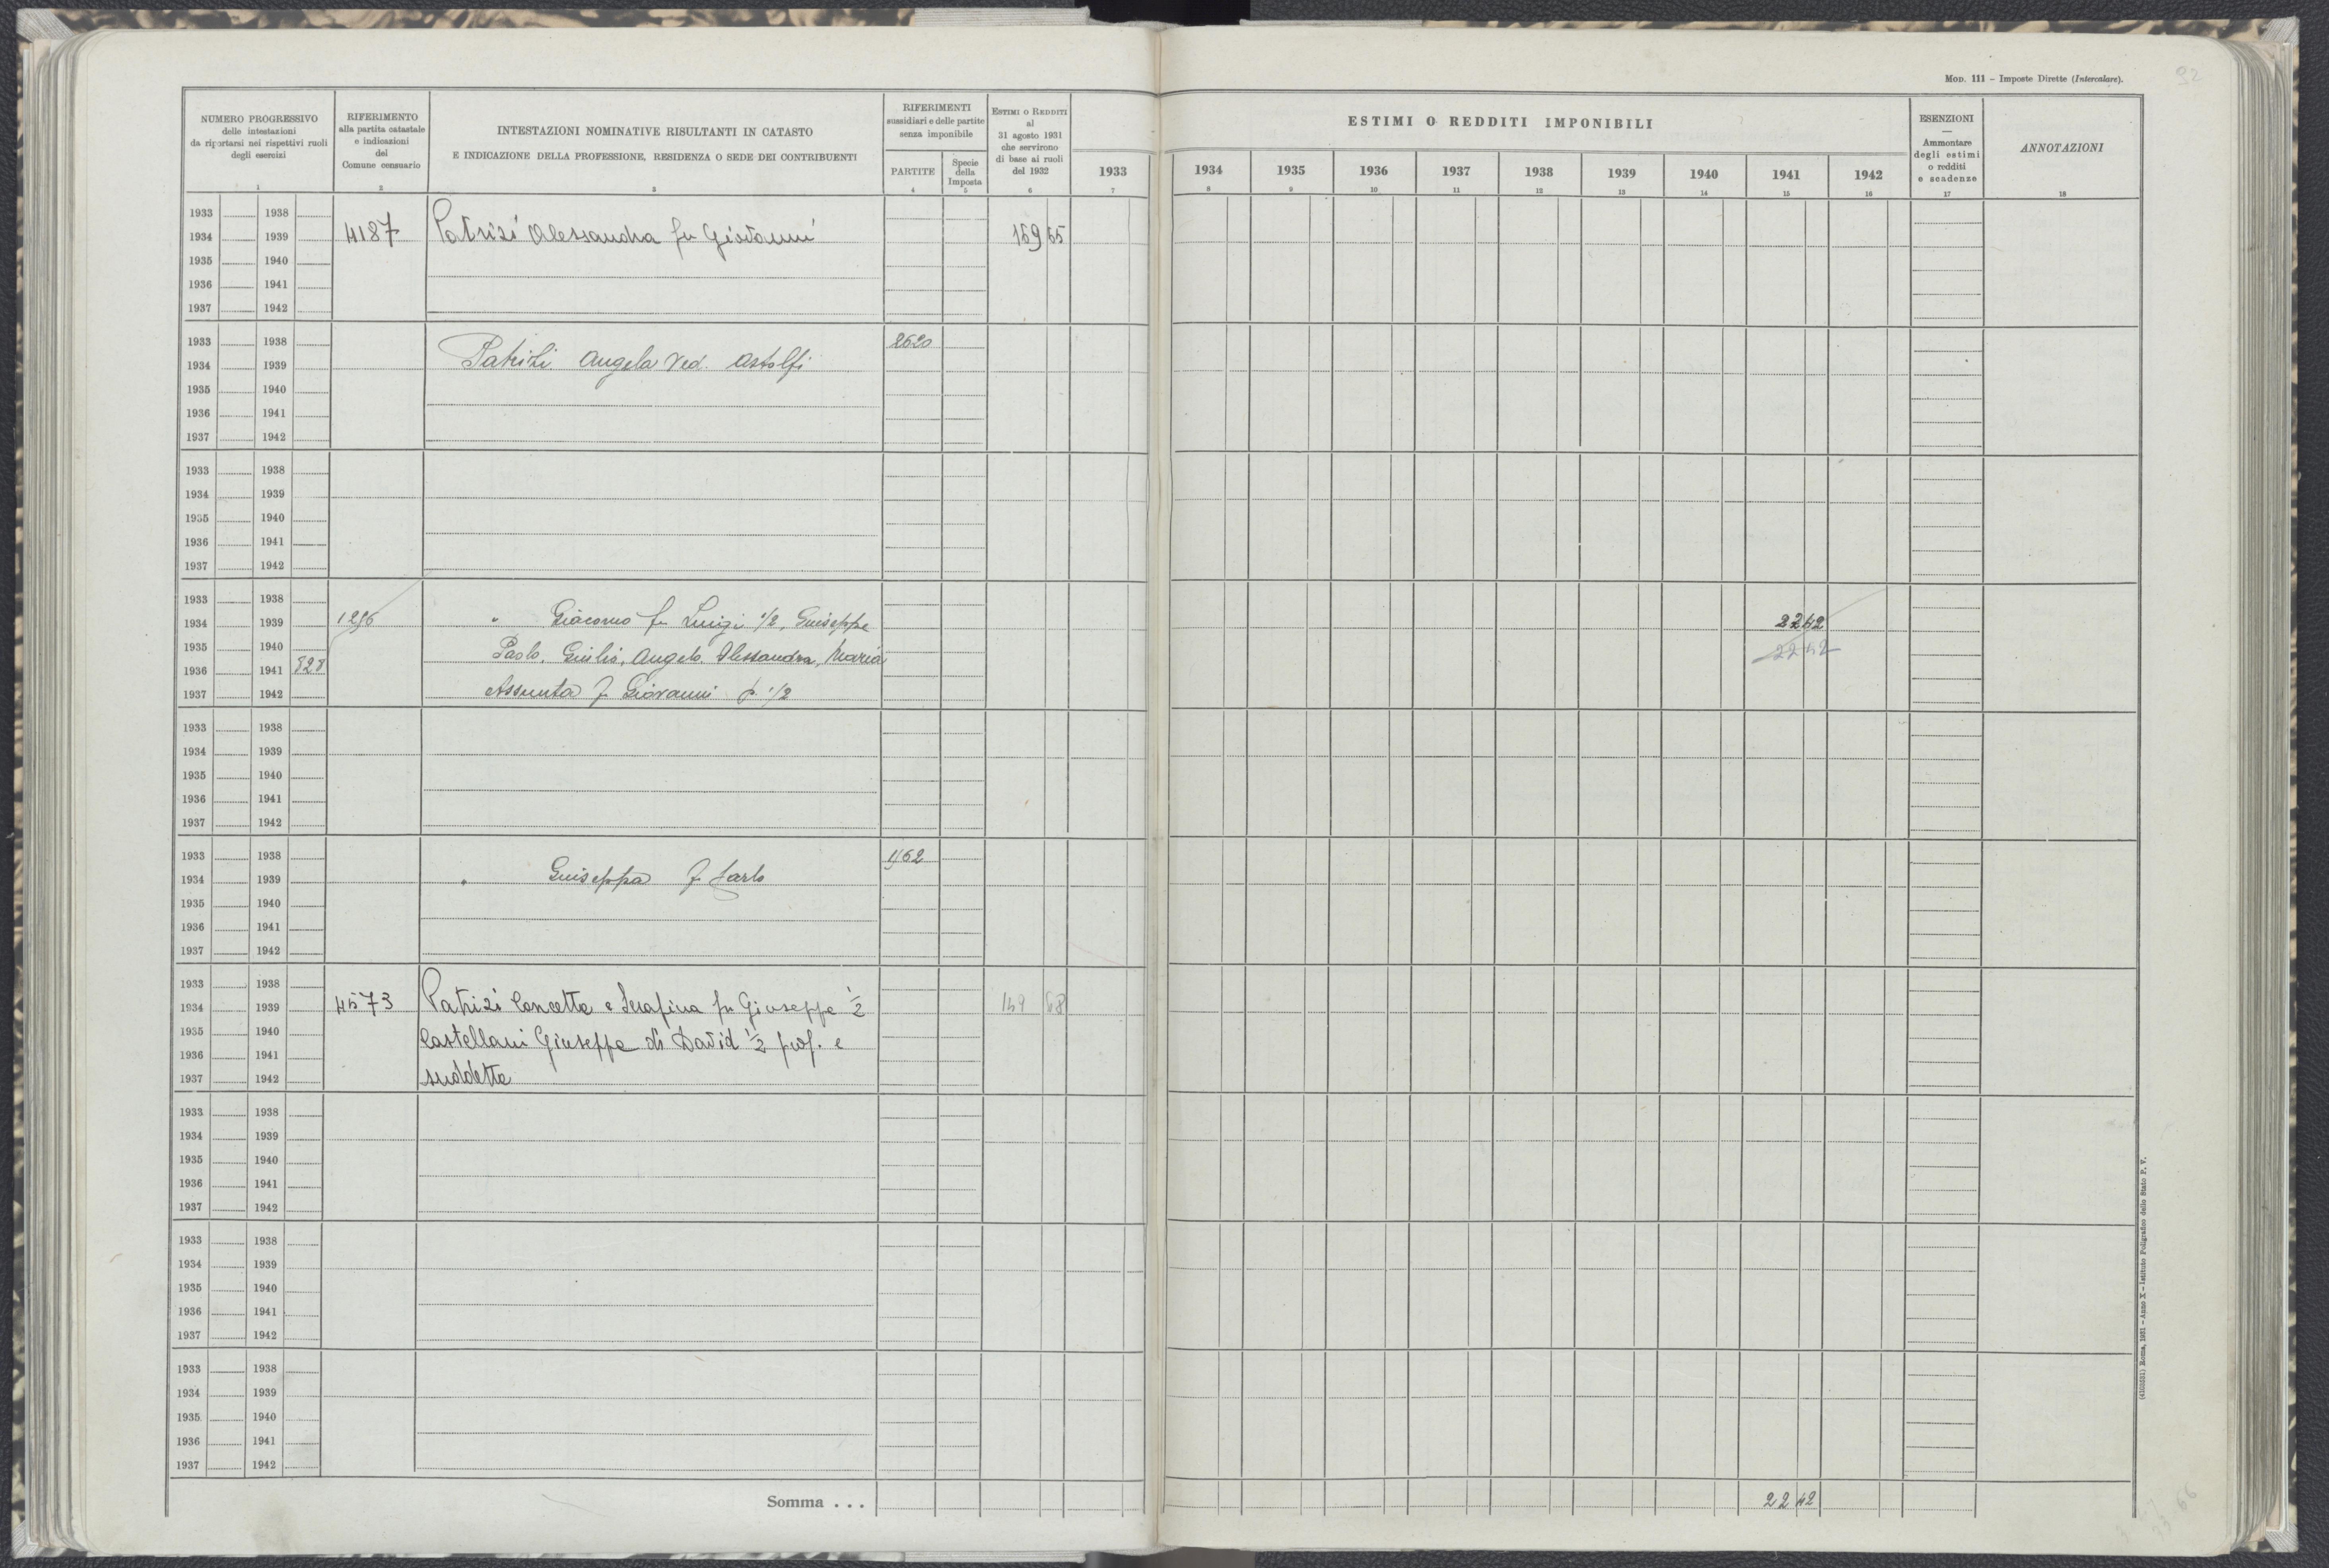 MOD. 111 – Imposte Dirette (Intercalare).
92
NUMERO PROGRESSIVO
delle intestazioni
da riportarsi nei rispettivi ruoli
degli esercizi
1
RIFERIMENTO
alla partita catastale
e indicazioni
del
Comune censuario
2
INTESTAZIONI NOMINATIVE RISULTANTI IN CATASTO
E INDICAZIONE DELLA PROFESSIONE, RESIDENZA O SEDE DEI CONTRIBUENTI
3
RIFERIMENTI
sussidiari e delle partite
senza imponibile
PARTITE
4
Specie
della
Imposta
5
ESTIMI O REDDITI
al
31 agosto 1931
che servirono
di base ai ruoli
del 1932
6
ESTIMI O REDDITI IMPONIBILI
1933 1934 1935 1936 1937 1938 1939 1940 1941 1942
7 8 9 10 11 12 13 14 15 16
ESENZIONI
—
Ammontare
degli estimi
o redditi
e scadenze
17
ANNOTAZIONI
18
1933 1938
1934 1939 4187 Patrizi Alessandra fu Giovanni 159 65
1935 1940
1936 1941
1937 1942
1933 1938 2620
1934 1939 Patrizi Angela Ved. Astolfi
1935 1940
1936 1941
1937 1942
1933 1938
1934 1939
1935 1940
1936 1941
1937 1942
1933 1938
1934 1939 1296 " Giacomo fu Luigi 1/2, Giuseppe 2242
1935 1940 Paolo, Giulio, Angelo, Alessandra, Maria 2242
1936 1941 828
1937 1942 Assunta f. Giovanni p. 1/2
1933 1938
1934 1939
1935 1940
1936 1941
1937 1942
1933 1938 1962
1934 1939 " Giuseppa f. Carlo
1935 1940
1936 1941
1937 1942
1933 1938
1934 1939 4573 Patrizi Concetta e Serafina fu Giuseppe 1/2 149 68
1935 1940 Castellani Giuseppe di David 1/2 prop. e
1936 1941
1937 1942 suddette
1933 1938
1934 1939
1935 1940
1936 1941
1937 1942
1933 1938
1934 1939
1935 1940
1936 1941
1937 1942
1933 1938
1934 1939
1935 1940
1936 1941
1937 1942
Somma . . . 22 42
(4103531) Roma, 1931 – Anno X – Istituto Poligrafico dello Stato P. V.